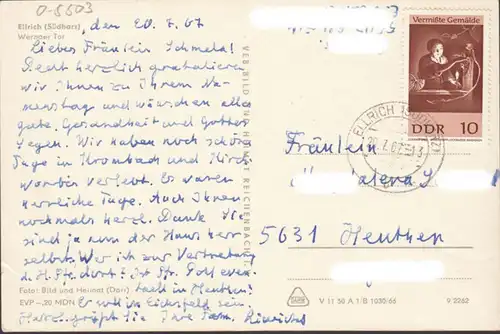 0-5503
Ellrich (Südharz)
Wernaer Tor
den 20. 7. 67
Liebes Fräulein Schmela!
Recht herzlich gratulieren
wir Ihnen zu Ihrem Na-
menstag und wünschen alles
gute. Gesundheit und Gottes
Segen. Wir haben noch schöne
Tage in und
verlebt. Es waren
herrliche Tage. Auch Ihnen
nochmals herzl. Dank. Sie
sind ja nun der Hausherr
selbst. Wer ist zur Vertretung
d. H. dort? Ist Pfr.
bald in Heuthen?
Er will im Eichsfeld sein.
Herzl. grüßt Sie Ihre Fam.
Foto: Bild und Heimat (Darr)
EVP -.20 MDN
VEB BILD UND HEIMAT REICHENBACH
Vermißte Gemälde
DDR 10
ELLRICH (SÜDHARZ)
Fräulein
5631 Heuthen
V 11 50 A 1/B 1030/66
9/2262